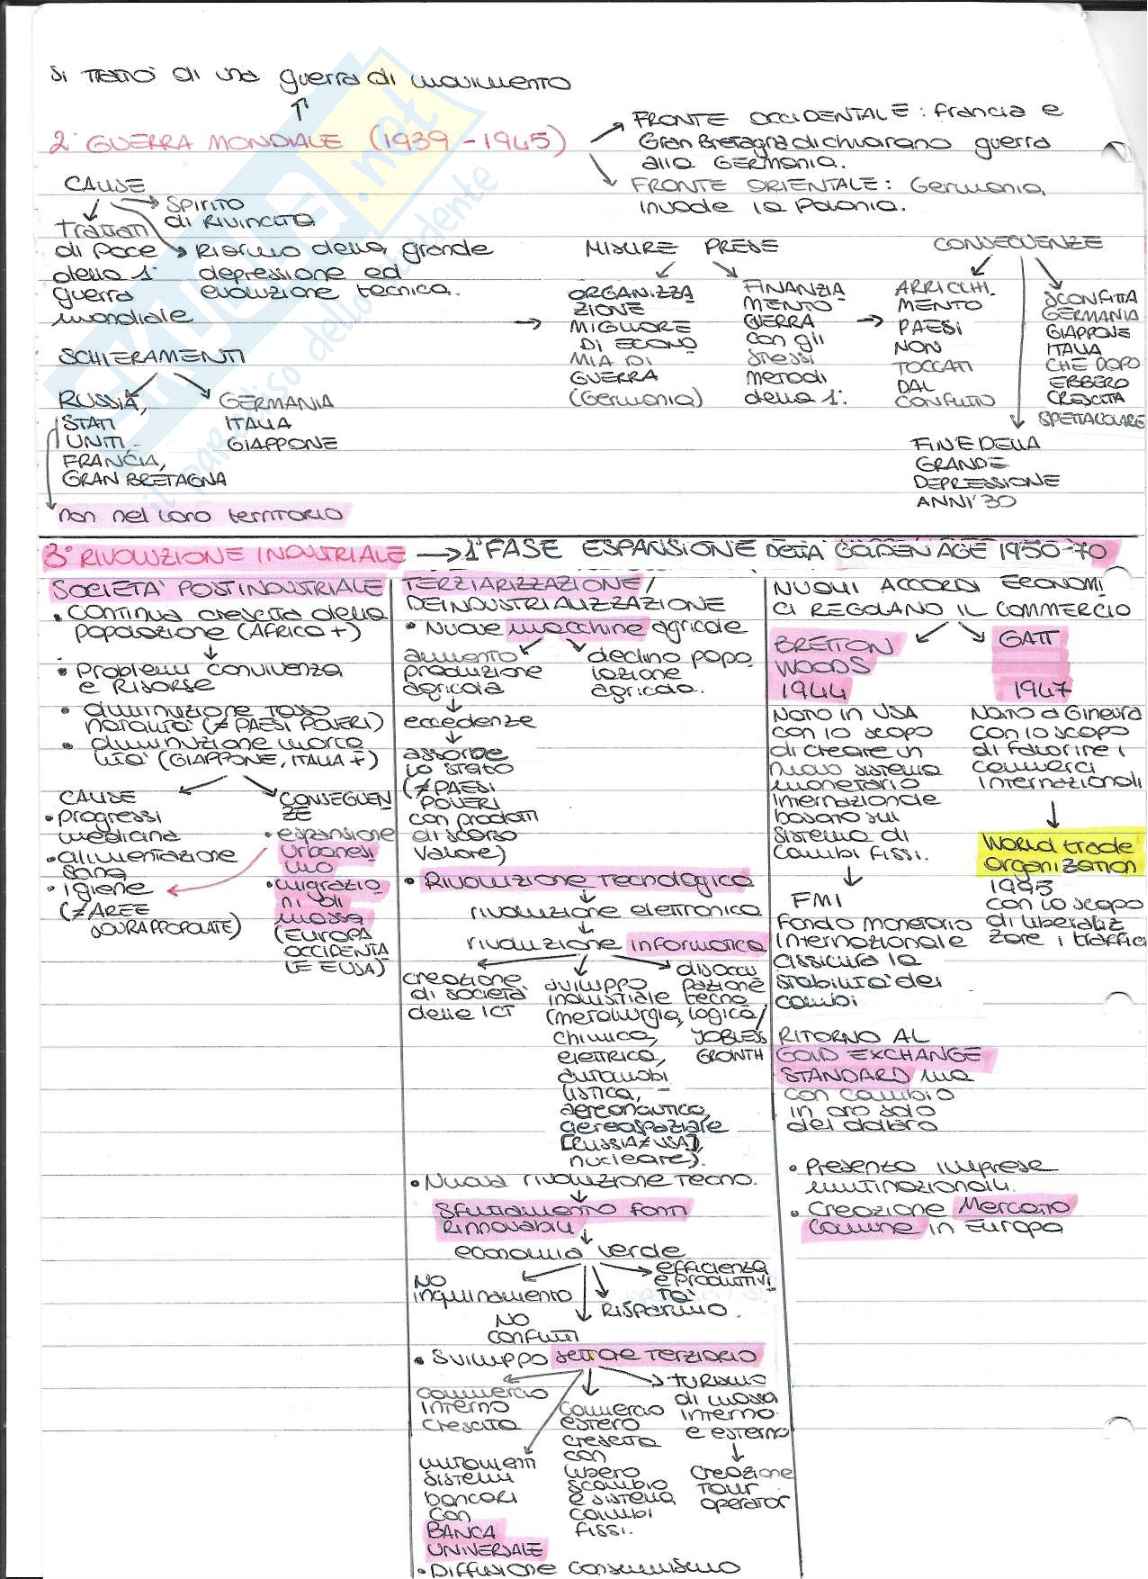 Si trattò di una guerra di movimento
2° GUERRA MONDIALE (1939-1945)
FRONTE OCCIDENTALE: Francia e
Gran Bretagna dichiarano guerra
alla GERMANIA.
FRONTE ORIENTALE: Germania
invade la Polonia.
CAUSE
SPIRITO
di RIVINCITA
Trattati
di Pace
della 1°
guerra
mondiale
Risalita della grande
depressione ed
evoluzione tecnica.
SCHIERAMENTI
RUSSIA,
STATI
UNITI
FRANCIA,
GRAN BRETAGNA
GERMANIA
ITALIA
GIAPPONE
non nel loro territorio
MISURE PRESE
ORGANIZZA
ZIONE
MIGLIORE
DI ECONO
MIA DI
GUERRA
(Germania)
FINANZIA
MENTO
GUERRA
con gli
stessi
metodi
della 1°.
CONSEGUENZE
ARRICCHI.
MENTO
PAESI
NON
TOCCATI
DAL
CONFLITTO
SCONFITTA
GERMANIA
GIAPPONE
ITALIA
CHE DOPO
EBBERO
CRESCITA
SPETTACOLARE
FINE DELLA
GRANDE
DEPRESSIONE
ANNI '30
3° RIVOLUZIONE INDUSTRIALE → 1° FASE ESPANSIONE DETTA GOLDEN AGE 1950-70
SOCIETA' POSTINDUSTRIALE
• Continua crescita della
popolazione (AFRICA +)
• Problemi convivenza
e Risorse
• diminuzione tasso
natalità (≠ PAESI POVERI)
• diminuzione morta
lità (GIAPPONE, ITALIA +)
CAUSE
• progressi
medicina
• alimentazione
sana
• igiene
(≠ AREE
SOVRAPPOPOLATE)
CONSEGUEN
ZE
• espansione
urbanesi
mo
• migrazio
ni di
massa
(EUROPA
OCCIDENTA
LE E USA)
TERZIARIZZAZIONE /
DEINDUSTRIALIZZAZIONE
• Nuove macchine agricole
aumento
produzione
agricola
declino popo
lazione
agricola.
eccedenze
assorbe
lo stato
(≠ PAESI
POVERI
con prodotti
di scarso
valore)
• Rivoluzione Tecnologica
rivoluzione elettronica
rivoluzione informatica
creazione
di società
delle ICT
sviluppo
industriale
(metallurgia,
chimica,
elettrica,
automobi
listica,
aereonautica,
aereospaziale
[RUSSIA ≠ USA],
nucleare).
disoccu
pazione
tecno
logica/
JOBLESS
GROWTH
• Nuova rivoluzione tecno.
Sfruttamento fonti
Rinnovabili
economia verde
NO
inquinamento
NO
conflitti
RISPARMIO.
efficienza
e produttivi
TA'
• Sviluppo settore terziario
commercio
interno
crescita
mutamenti
sistemi
bancari
con
BANCA
UNIVERSALE
commercio
estero
crescita
con
libero
scambio
e sistema
cambi
fissi.
turismo
di massa
interno
e esterno
creazione
Tour
operator
• Diffusione consumismo
NUOVI ACCORDI ECONOMI
CI REGOLANO IL COMMERCIO
BRETTON
WOODS
1944
Nato in USA
con lo scopo
di creare un
nuovo sistema
monetario
internazionale
basato sul
sistema di
cambi fissi.
FMI
Fondo Monetario
Internazionale
assicura la
stabilità dei
cambi
GATT
1947
Nato a Ginevra
con lo scopo
di favorire i
commerci
internazionali
World trade
organization
1995
con lo scopo
di liberaliz
zare i traffici
RITORNO AL
GOLD EXCHANGE
STANDARD ma
con cambio
in oro solo
del dollaro
• Presenza imprese
multinazionali.
• Creazione Mercato
Comune in Europa
SKUOLA.net
il paradiso dello studente